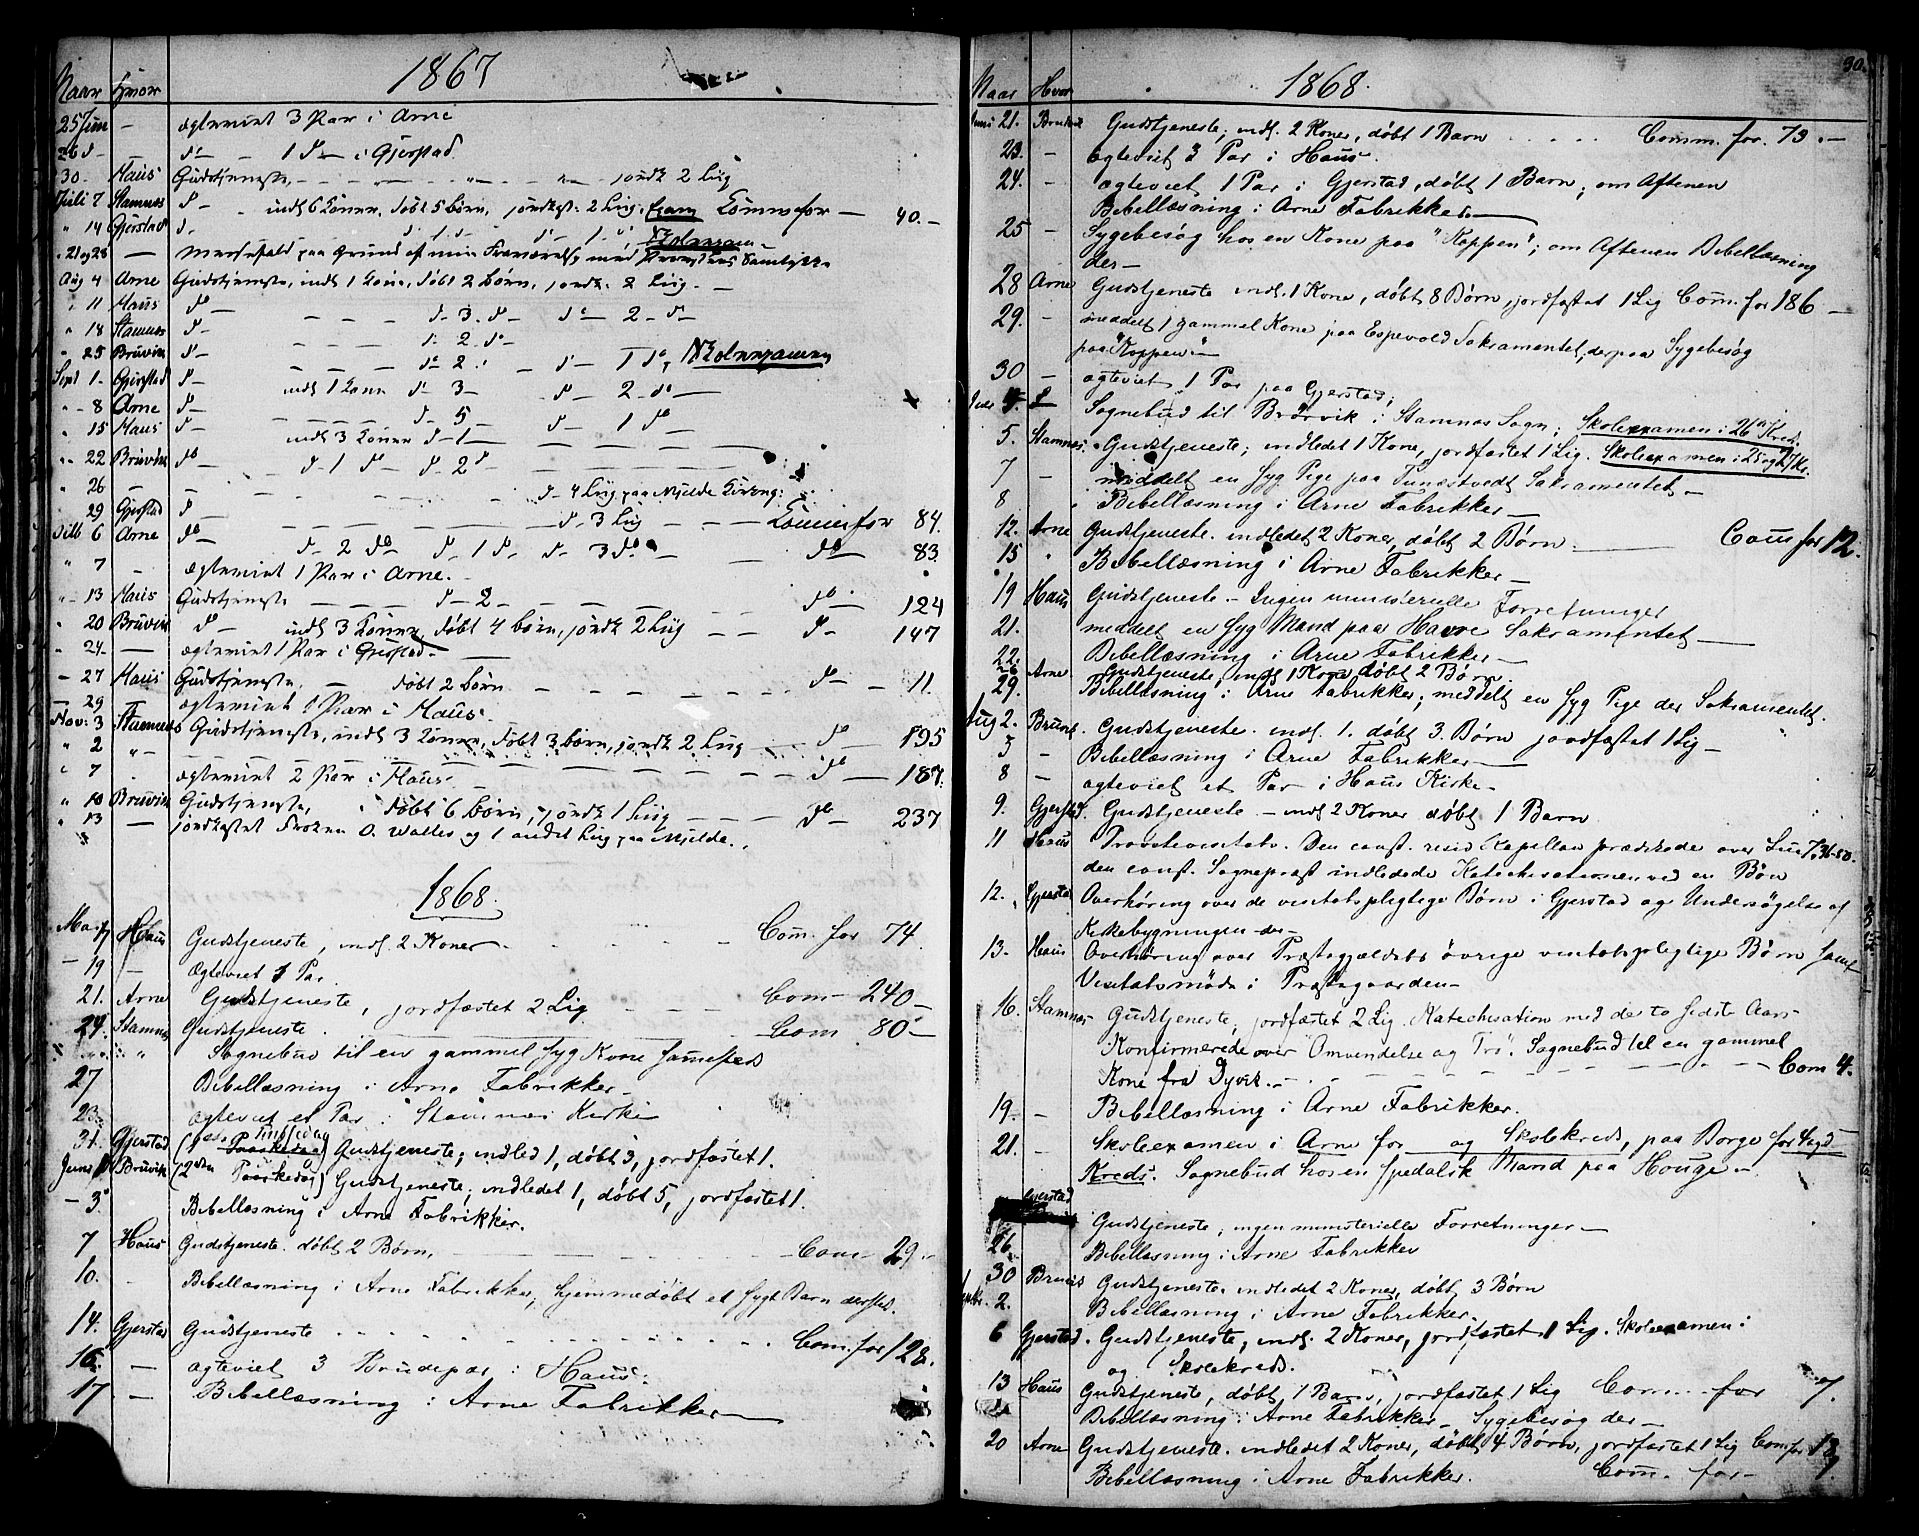 1867
Naar Hvor
25 Juni — ægteviet 3 Par i Arne
26 d — d— 1 d— i Gjerstad
30. Haus Gudstjeneste, — — — jordf. 2 Liig
Juli 7 Stamnes d— indl 6 Koner, døbt 5 børn, jordfest: 2 Liig, Comm for — 40.—
" 14 Gjerstad d.
" 21 og 28 — Messefald paa Grund af min Fraværelse med Provstens Samtykke
Aug 4 Arne Gudstjeneste, indl 1 Kone, døbt 2 børn, jordf. 2 Liig. —
" 11 Haus d— — d— 3. d— d— 2— d—
" 18 Stamnes d— — d: 2. d—
" 25 Bruvik d— — d— 2. d— 1 d., Skoleexamen
Sept 1— Gjerstad d— indl 1 Kone d— 3— d— 2— d—
" - 8 Arne d— — d— 5 d— 1 d
" 15 Haus d— indl 3 Koner d— 1 —
" 22 Bruvik d— — d— 1 d— d— 2 d
" 26 — — — d— 4 Liig paa Mjelde
" 29 Gjerstad d— — d— 3 Liig — Comm for 84.
Oktb 6 Arne d— d— 2 d d— 1 d— d— 3 d — d— 83.
" 7 — ægteviet 1 Par i Arne.—
" - 13 Haus Gudstjeneste — d— 2 — d— 124
" 20 Bruvik d— indl 3 Koner, døbt 4 børn, jordf 2 Liig — d— 147
" 24 — ægteviet 1 Par i Gjerstad.
- 27 Haus Gudstjeneste, — døbt 2 børn — d— 11.
29 ægteviet 1 Par i Haus.
Nov: 3 Stamnes Gudstjeneste, indl 3 Koner, døbt 3 børn, jordf 2 Liig — d— 195
" 2 "-
" 7 . ægteviet 2 Par i Haus. — d— 187.
" 10 Bruvik Gudstjeneste, døbt 6 børn, jordf 1 Liig — d— 237
" 13 — jordfæstet Frøken O. Walles og 1 andet Liig paa Mjelde.
1868.
Mai 17 Haus Gudstjeneste, indl. 2 Koner — Com. for 74.
— 19 — Ægteviet 1 Par
21. Arne Gudstjeneste, jordfæstet 2 Lig — Com— 240—
24. Stamnes Gudstjeneste. — Com 80—
" Sognebud til en gammel syg Kone sammesteds
27 Bibellæsning i Arne Fabrikker—
23. ægteviet et Par i Stamnes Kirke
31. Gjerstad (1ste Pinsedag) Gudstjeneste; indled 1, døbt 3, jordfæstet 1.
Juni 1 Bruvik (2den Paaskedag) Gudstjeneste; indledet 1, døbt 5, jordfæstet 1.
— 3. Bibellæsning i Arne Fabrikker.
7 Haus Gudstjeneste. døbt 2 Børn, — Com— 29.
10. . Bibellæsning i Arne Fabrikker, hjemmedøbt et sygt Barn dersted.
14. Gjerstad Gudstjeneste . . . Com. for 128.
16. — ægteviet 3 Brudepar i Haus.
17 — Bibellæsning i Arne Fabrikker—
30.
1868.
Naar Hvor
Juni 21. Bruvik Gudstjeneste; indl. 2 Koner, døbt 1 Barn . . . . . Comm. for. 73.—
23. — ægteviet 3 Par i Haus.
24. — ægteviet 1 Par i Gjerstad, døbt 1 Barn; om Aftenen
Bibellæsning i Arne Fabrikker—
25 — Sygebesøg hos en Kone paa "Koppen"; om Aftenen Bibellæsning
der—
28 Arne Gudstjeneste indl. 1 Kone, døbt 8 Børn, jordfæstet 1 Lig Com. for 186—
29. — meddelt 1 gammel Kone paa Espevold Sakramentet, derpaa Sygebesøg
paa "Koppen"—
30 — ægteviet 1 Par paa Gjerstad;
Sognebud til Brørvik i Stamnes Sogn; Skoleexamen i 26de Kred.
5. Stamnes. Gudstjeneste; indledet 1 Kone, jordfæstet 1 Lig. Skoleexamen i 25 og 27 Kr.
7 — meddelt en syg Pige paa Tunestvedt Sakramentet—
8 Bibellæsning i Arne Fabrikker—
12. Arne Gudstjeneste. indledet 2 Koner, døbt 2 Børn — Com for 12.
15 " Bibellæsning i Arne Fabrikker—
19 Haus Gudstjeneste — Ingen ministerielle Forretninger
21. meddelt en syg Mand paa Havre Sakramentet—
22. Bibellæsning i Arne Fabrikker—
26 Arne Gudstjeneste, indl 1 Kone døbt 2 Børn.
29. Bibellæsning i Arne Fabrikker; meddelt en syg Pige der Sakramentet.
Aug 2. Bruvik. Gudstjeneste. indl. 1. døbt 3. Børn jordfæstet 1 Lig—
5 — Bibellæsning i Arne Fabrikker—
8 — ægteviet et Par i Haus Kirke—
9. Gjerstad. Gudstjeneste — indl 2 Koner døbt 1 Barn
11 Haus Provstevisitats. Den const. resid Kapellan prædikede over Luc 7, 36-50.
den const. Sognepræst indledede Katechisationen ved en Bøn
12. Gjerstad Overhøring over de visitatspligtige Børn i Gjerstad og Undersøgelse af
Kirkebygningen der—
13. Haus Overhøring over Præstegjældets øvrige visitatspligtige Børn samt
Visitatsmøde i Præstegaarden—
16. Stamnes Gudstjeneste, jordfæstet 2 Lig. Katechisation med de to sidste Aars
Konfirmerede over "Omvendelse og Tro". Sognebud til en gammel
Kone fra Dyvik. — Com 4.
19. — Bibellæsning i Arne Fabrikker.
21. — Skoleexamen i Arne for og Skolekreds, paa Borge for Sagd
Kreds. Sognebud hos en spedalsk Mand paa Houge—
Gjerstad Gudstjeneste; ingen ministerielle Forretninger—
26. Bibellæsning i Arne Fabrikker
30 Bruvik Gudstjeneste. indledet 2 Koner, døbt 3 Børn
Septbr. 2. Bibellæsning i Arne Fabrikker.
6 Gjerstad. Gudstjeneste, indl. 2 Koner, jordfæstet 1 Lig. Skoleexamen i
og Skolekreds.
13 Haus Gudstjeneste, døbt 1 Barn, jordfæstet 1 Lig Com— for 7.
Bibellæsning i Arne Fabrikker— Sygebesøg der—
20 Arne Gudstjeneste. indledet 2 Koner, døbt 4 Børn, jordfæstet 1 Lig Com for 13
Bibellæsning i Arne Fabrikker. Com. for—